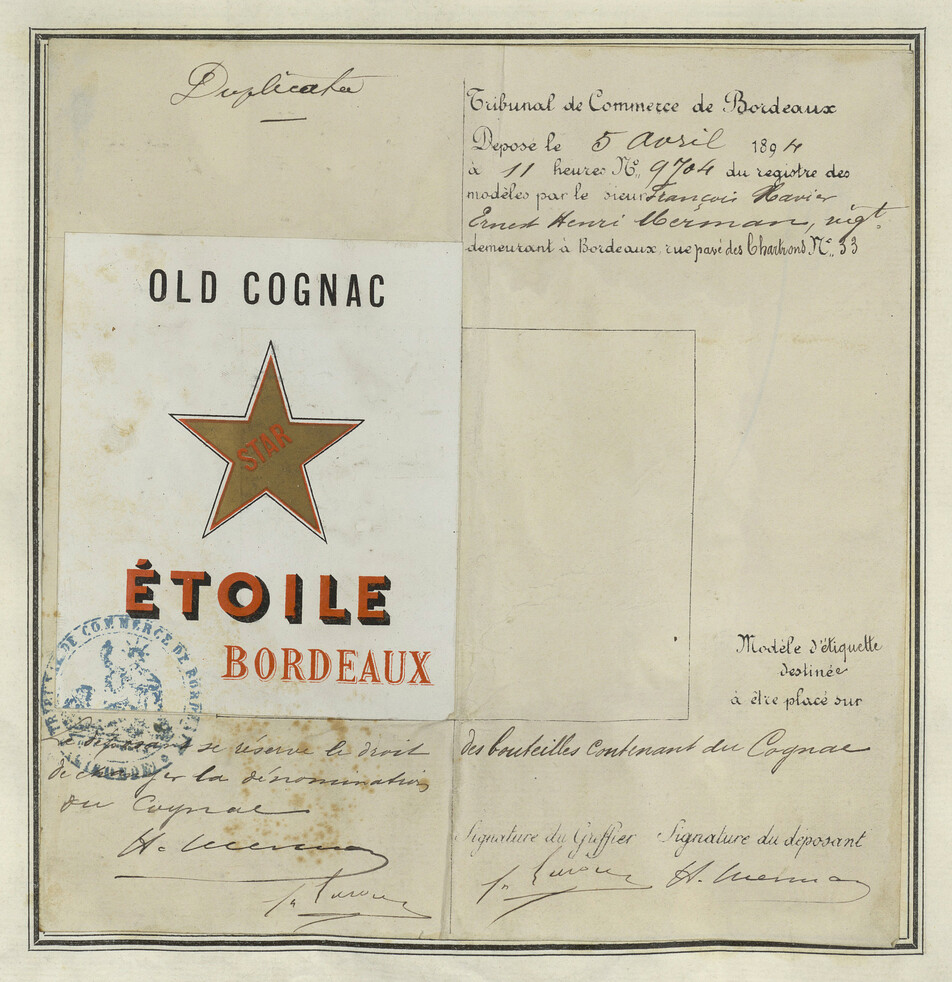 Duplicata
Tribunal de Commerce de Bordeaux
Déposé le 5 avril 1894
à 11 heures Nº 9704 du registre des
modèles par le sieur François Xavier
Ernest Henri Merman, nég.t
demeurant à Bordeaux rue pavé des Chartrons Nº 33
OLD COGNAC
STAR
ÉTOILE
BORDEAUX
TRIBUNAL DE COMMERCE DE BORDEAUX
Modèle d'étiquette
destinée
à être placé sur
des bouteilles contenant du Cognac
Le déposant se réserve le droit
de changer la dénomination
du Cognac
H. Merman
Signature du Greffier Signature du déposant
H. Merman